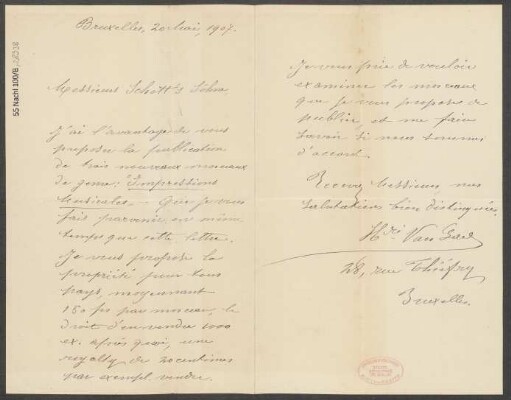 Bruxelles, 20 Mai, 1907.
Messieurs Schott's Söhne
J'ai l'avantage de vous
proposer la publication
de trois nouveaux morceaux
de genre: Impressions
Musicales. Que je vous
fais parvenir en même
temps que cette lettre.
Je vous propose la
propriété pour tous
pays, moyennant
150 frs par morceau, le
droit d'en vendre 1000
ex. après quoi, une
royalty de 20 centimes
par exempl. vendu.
Je vous prie de vouloir
examiner les morceaux
que je vous propose de
publier, et me faire
savoir si nous sommes
d'accord.
Recevez Messieurs mes
salutations bien distinguées,
Hri Van Gael
28, rue Thiéfry
Bruxelles.
55 Nachl 100/B